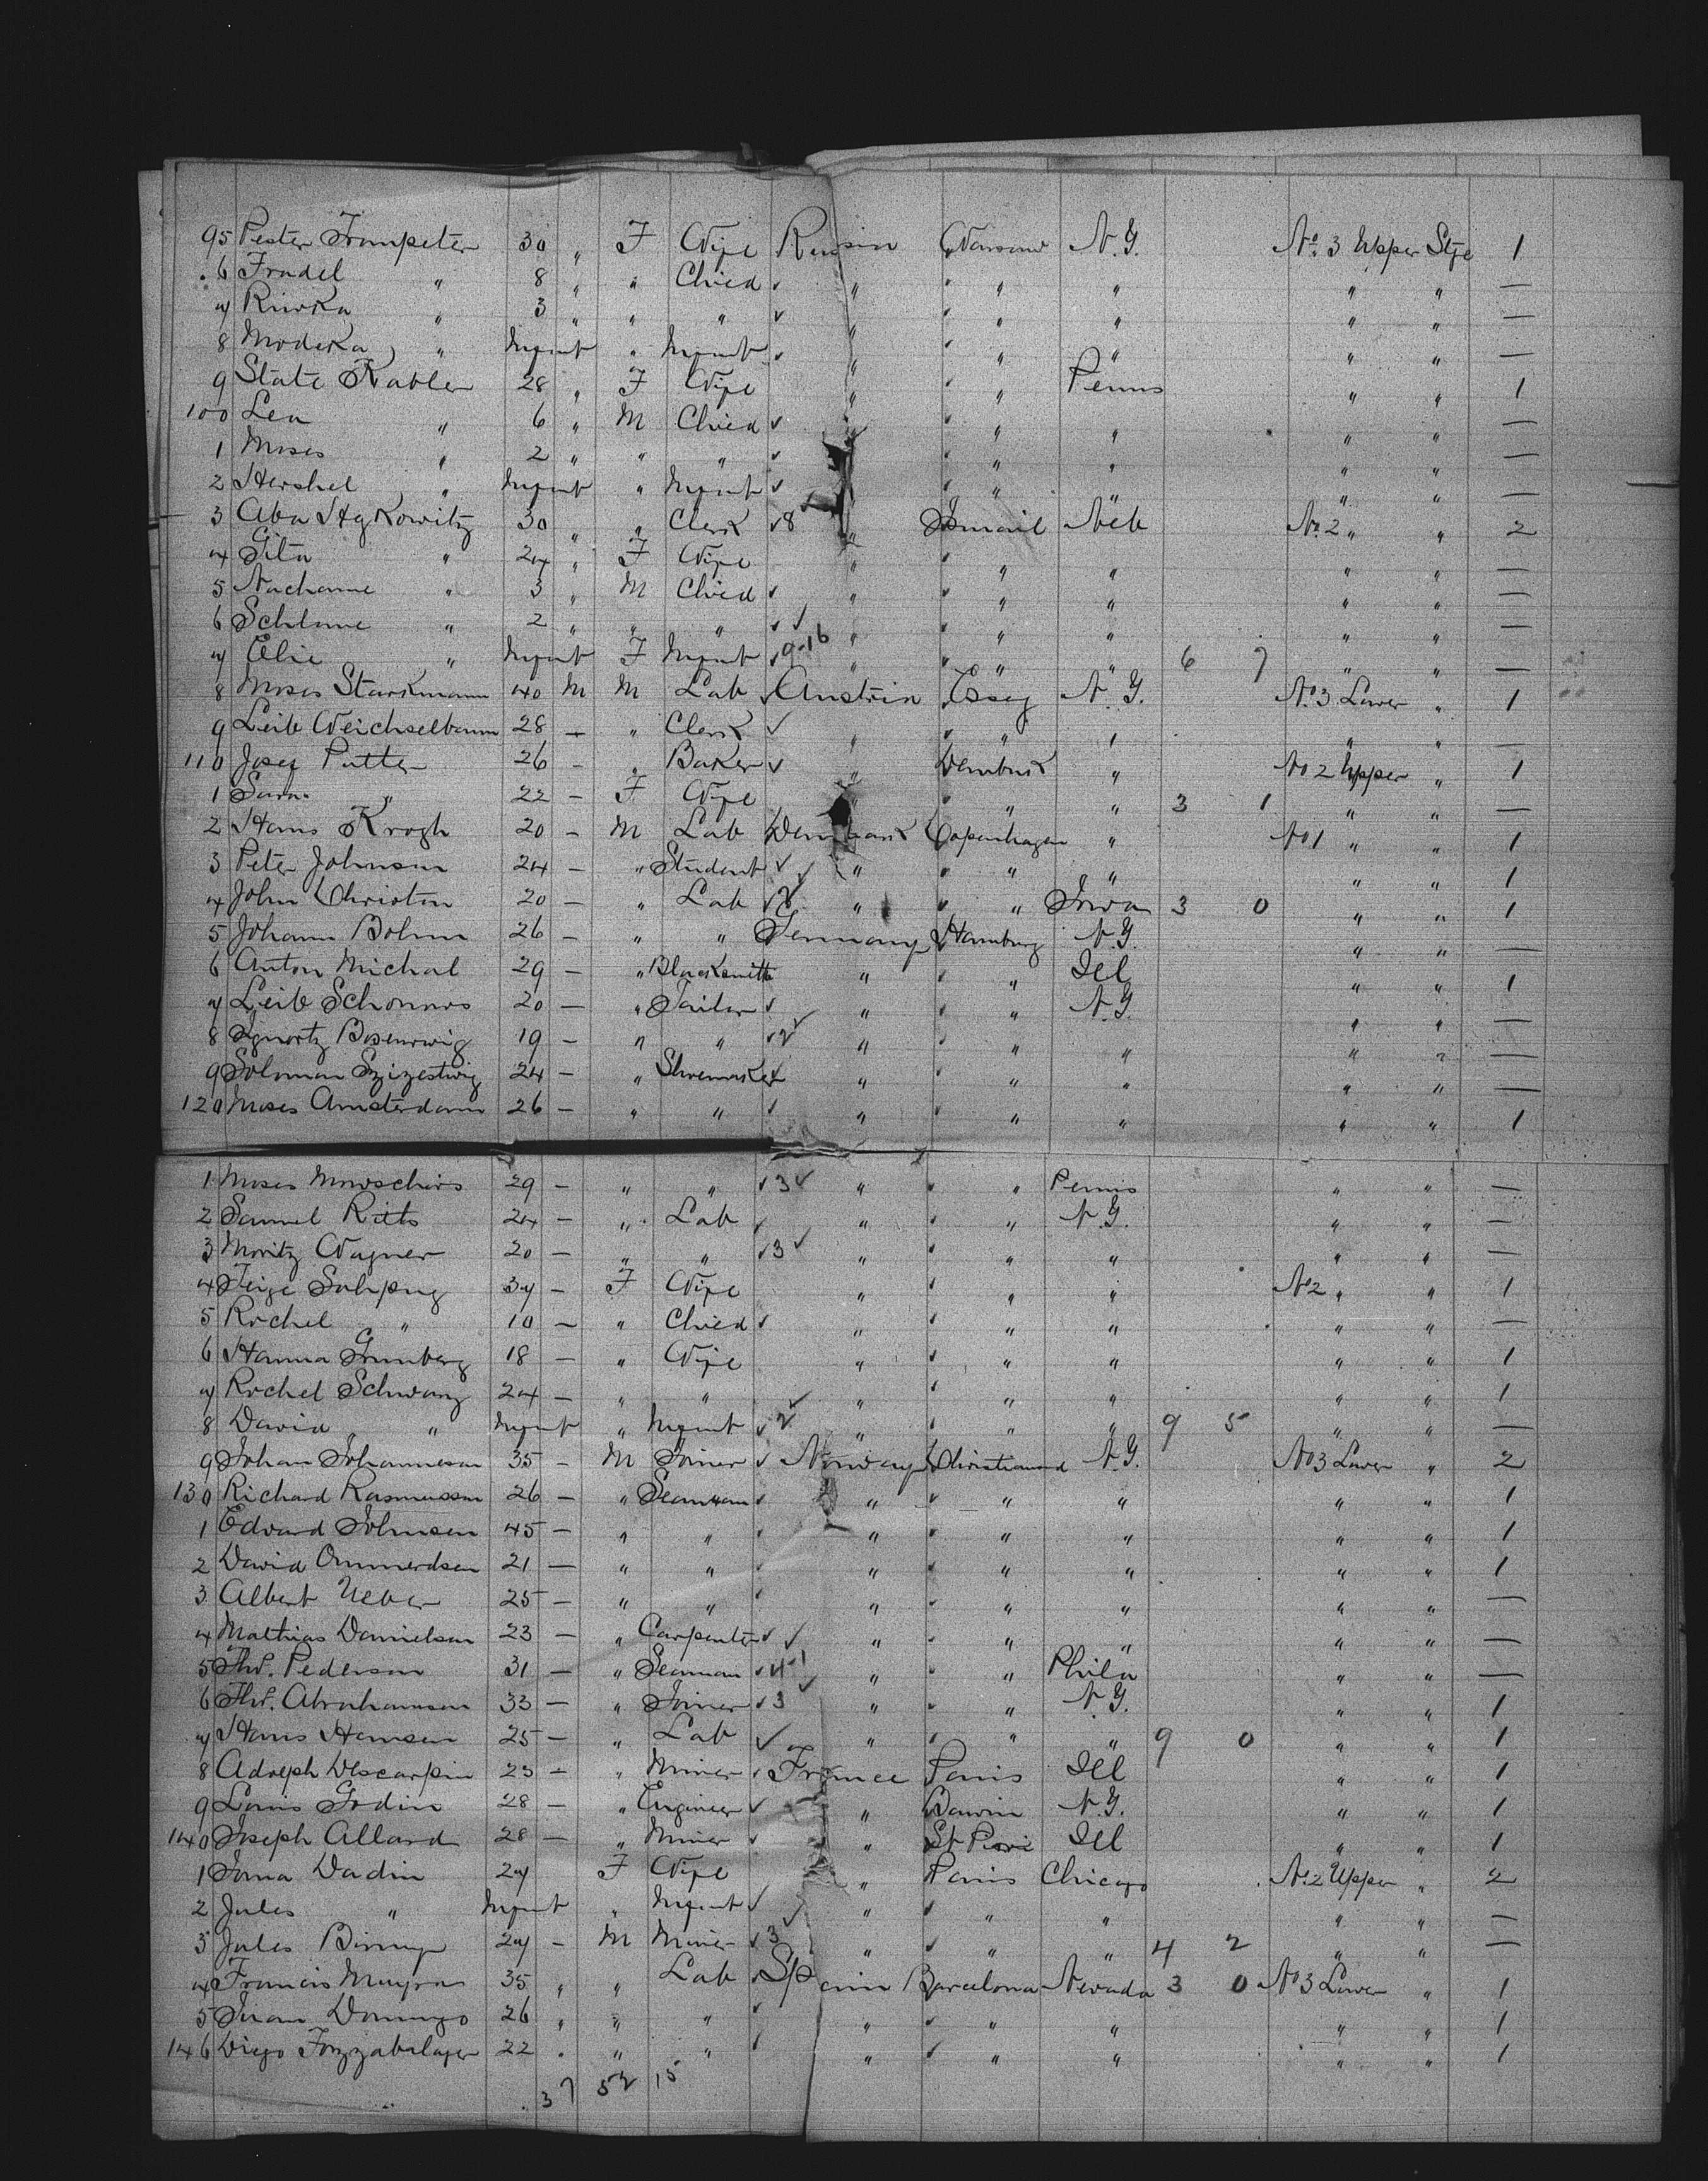 95 Pester Trumpeter 30 " F Wife Russia Warsaw N.Y. No. 3 Upper Stge 1
6 Fradel " 8 " " Child " " " " " —
7 Riwka " 3 " " " " " " " " —
8 Mordka " Infant " Infant " " " " " —
9 State Kabler 28 " F Wife " " Penns " " 1
100 Lea " 6 " M Child " " " " " —
1 Moses " 2 " " " " " " " " —
2 Hershel " Infant " Infant " " " " " —
3 Aba 30 " " Clerk 8 " Ismail Neb No. 2 " " 2
4 Gita " 24 " F Wife " " " " " —
5 Nachame " 3 " M Child " " " " " —
6 Schlame " 2 " " " " " " " " —
7 Elie " Infant F Infant 9-16 " " " 6 7 " " —
8 Moses Starkmann 40 M M Lab Austria Esseg N.Y. No. 3 Lower " 1
9 Leib Weichselbaum 28 — " Clerk " " " " " —
110 Josef Putter 26 — " Baker " " No 2 Upper " 1
1 Sara " 22 — F Wife " " " 3 1 " " —
2 Hans Krogh 20 — M Lab Denmark Copenhagen " No 1 " " 1
3 Peter Johnson 24 — " Student " " " " " 1
4 John Christon 20 — " Lab 2 " " Iowa 3 0 " " 1
5 Johann Bohm 26 — " " Germany Hamburg N.Y. " " —
6 Anton Michal 29 — " Blacksmith " " Ill " " 1
7 Leib 20 — " Tailor " " N.Y. " " —
8 19 — " " 2 " " " " " —
9 Soloman 24 — " Shoemaker " " " " " —
120 Moses Amsterdam 26 — " " " " " " " 1
1 Moses 29 — " " 3 " " Penns " " —
2 Samuel Ritts 24 — " Lab " " N.Y. " " —
3 Moritz Wagner 20 — " " 3 " " " " " —
4 Feige 37 — F Wife " " " No 2 " " 1
5 Rochel " 10 — " Child " " " " " —
6 Hanna Grunberg 18 — " Wife " " " " " 1
7 Rochel Schwarz 24 — " " " " " " " 1
8 David " Infant " Infant 2 " " " 9 5 " " —
9 Johan Johannesen 35 — M Joiner Norway Christiansand N.Y. No 3 Lower " 2
130 Richard Rasmussen 26 — " Seaman " " " " " 1
1 Edvard Johnsen 45 — " " " " " " " 1
2 David Ommerdsen 21 — " " " " " " " 1
3 Albert 25 — " " " " " " " —
4 Mathias Danielsen 23 — " Carpenter " " " " " —
5 Thv. Pedersen 31 — " Seaman 4-1 " " Phila " " —
6 Thv. Abrahamsen 33 — " Joiner 3 " " N.Y. " " 1
7 Hans Hansen 25 — " Lab " " " 9 0 " " 1
8 Adolph Descarpin 23 — " Miner France Paris Ill " " 1
9 Louis Godin 28 — " Engineer " N.Y. " " 1
140 Joseph Allard 28 — " Miner " Ill " " 1
1 Dadin 27 F Wife " Paris Chicago No. 2 Upper " 2
2 Jules " Infant " Infant " " " " " —
3 Jules 27 — M Miner 3 " " " 4 2 " " —
4 Francis 35 " " Lab Spain Barcelona Nevada 3 0 No 3 Lower " 1
5 Juan Domingo 26 " " " " " " " " 1
146 Diego 22 " " " " " " " " 1
37 52 15